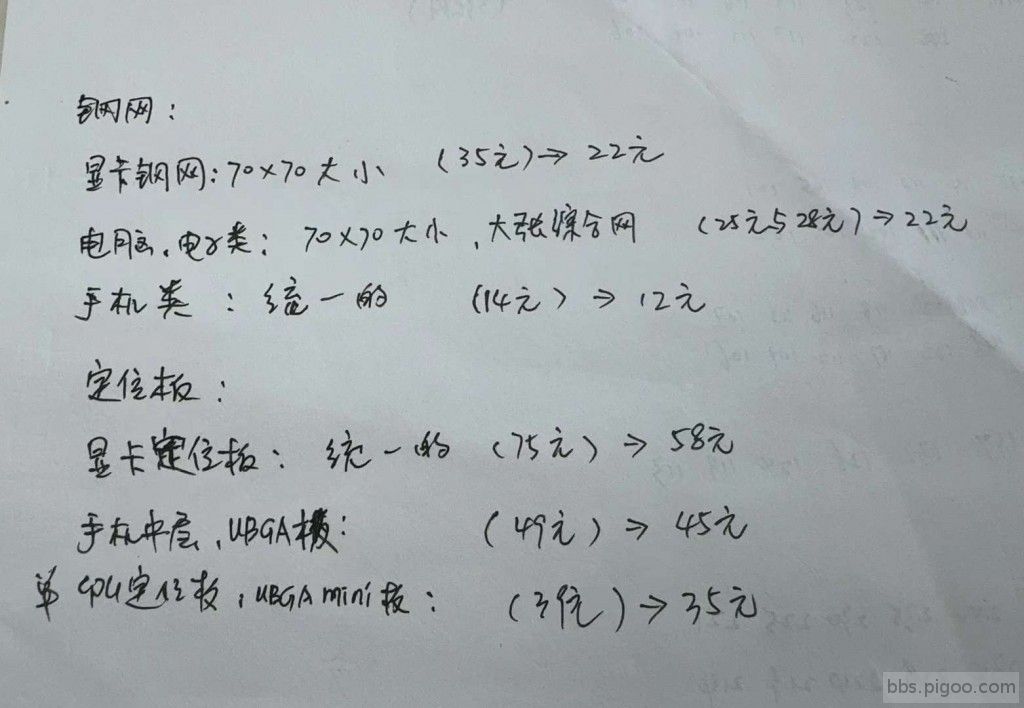 钢网：
显卡钢网：70×70大小 （35元）→ 22元
电脑、电子类：70×70大小，大张综合网 （25元与28元）→22元
手机类：统一的 （14元）→ 12元
定位板：
显卡定位板：统一的（75元）→ 58元
手机中层，UBGA板： （49元）→ 45元
单CPU定位板，UBGA mini板： （39元）→35元
bbs.pigoo.com